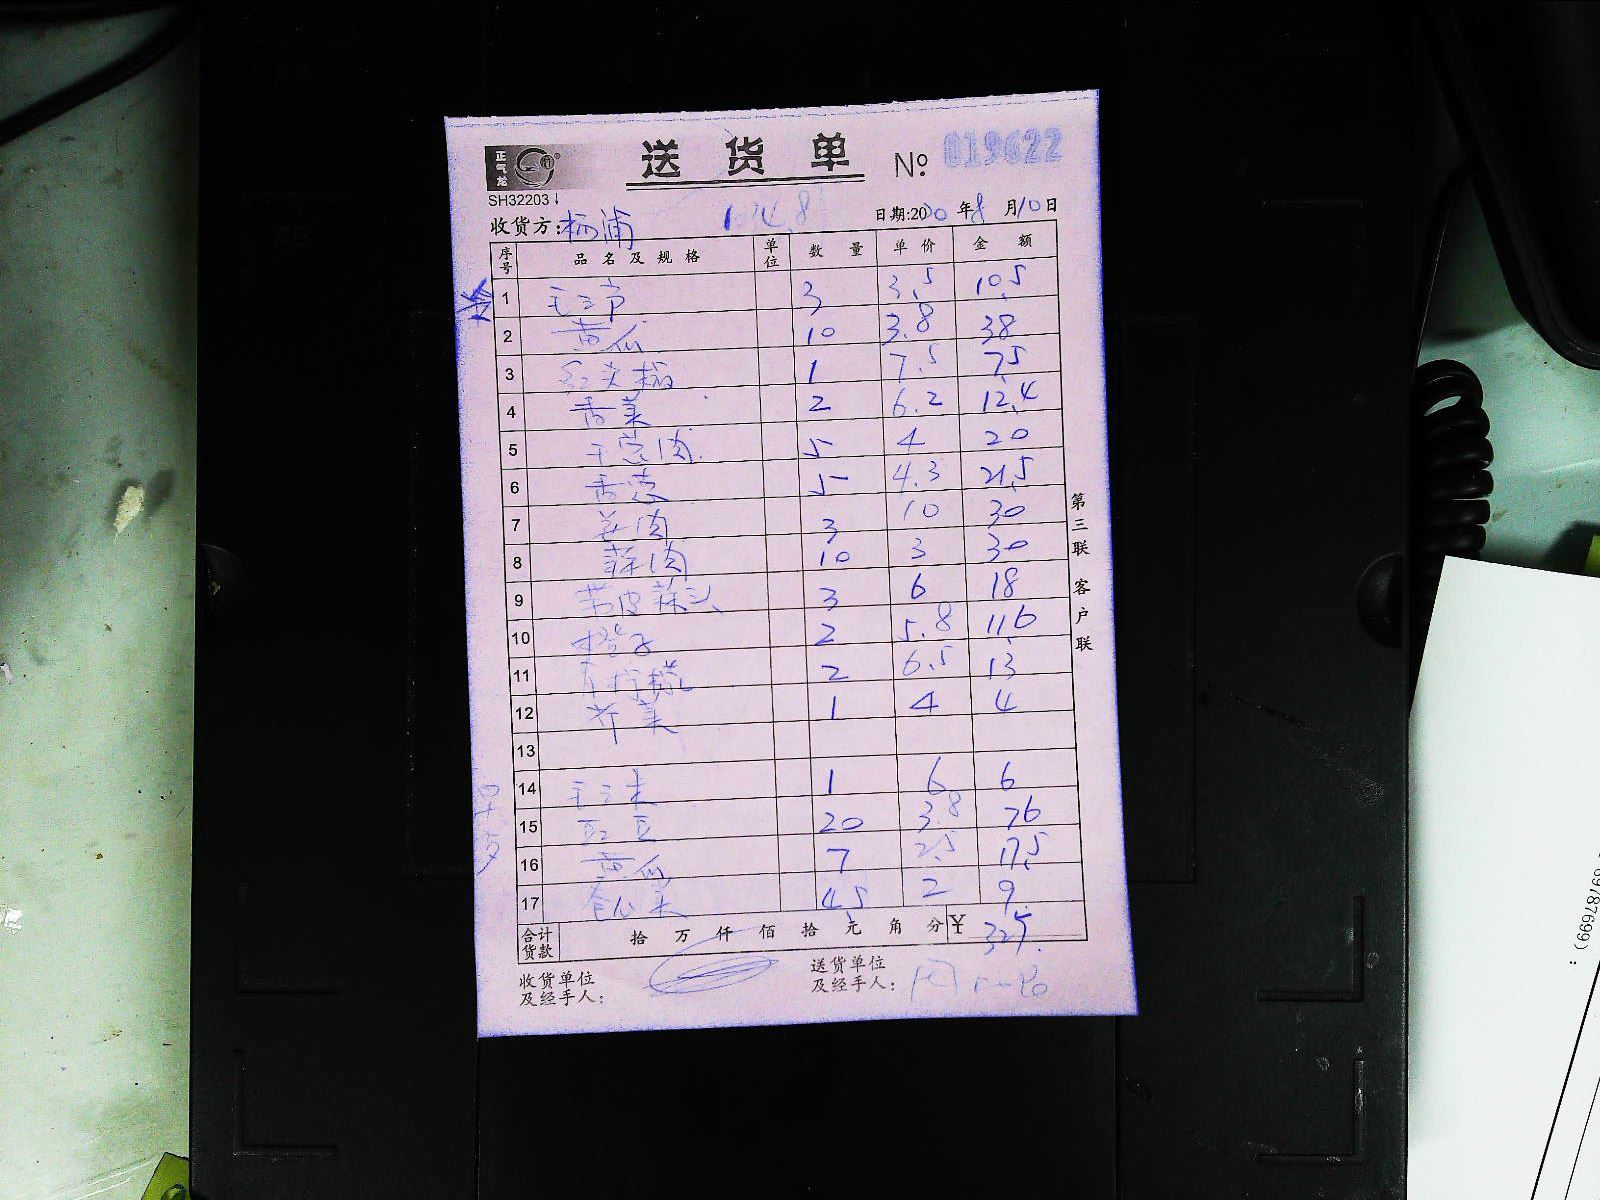 正气龙
送 货 单 № 019622
SH32203
收货方:杨浦 日期:2020年8月10日
序号 品名及规格 单位 数量 单价 金额
1 3 3.5 10.5
2 黄瓜 10 3.8 38
3 红尖椒 1 7.5 7.5
4 香菜 2 6.2 12.4
5 干葱肉 5 4 20
6 香葱 5 4.3 21.5
7 姜肉 3 10 30
8 蒜肉 10 3 30
9 带皮蒜头 3 6 18
10 橙子 2 5.8 11.6
11 青柠檬 2 6.5 13
12 芥菜 1 4 4
13
14 1 6 6
15 豇豆 20 3.8 76
16 黄瓜 7 2.5 17.5
17 4.5 2 9
合计货款 拾 万 仟 佰 拾 元 角 分 ¥ 325
收货单位及经手人:
送货单位及经手人:
第三联 客户联
69787699):